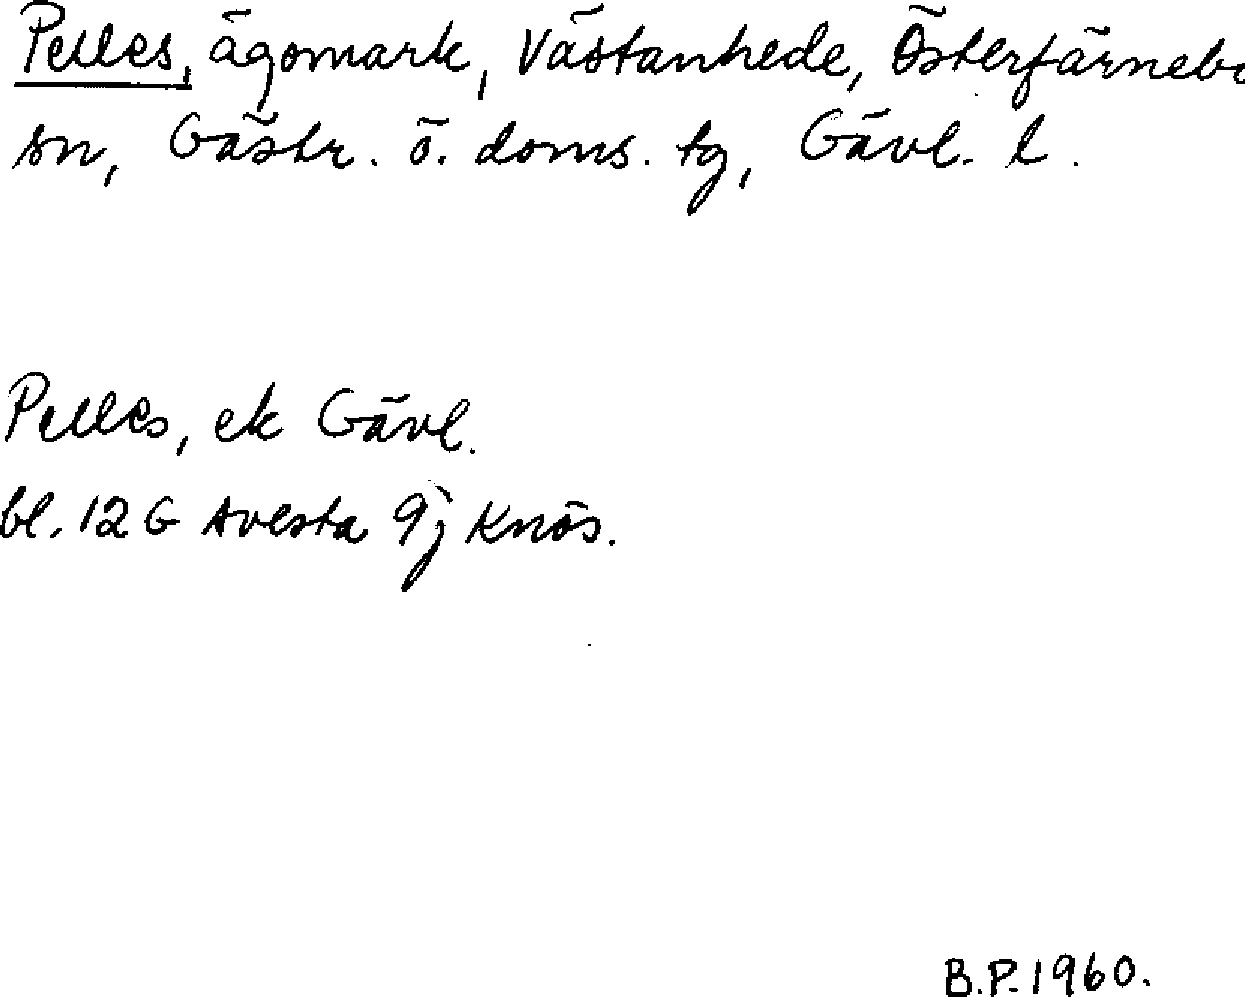 Pelles, ägomark, Västanhede, Österfärnebo
sn, Gästr. ö. doms. tg, Gävl. l.
Pelles, ek Gävl.
bl. 12 G Avesta 9j Knös.
B.P. 1960.